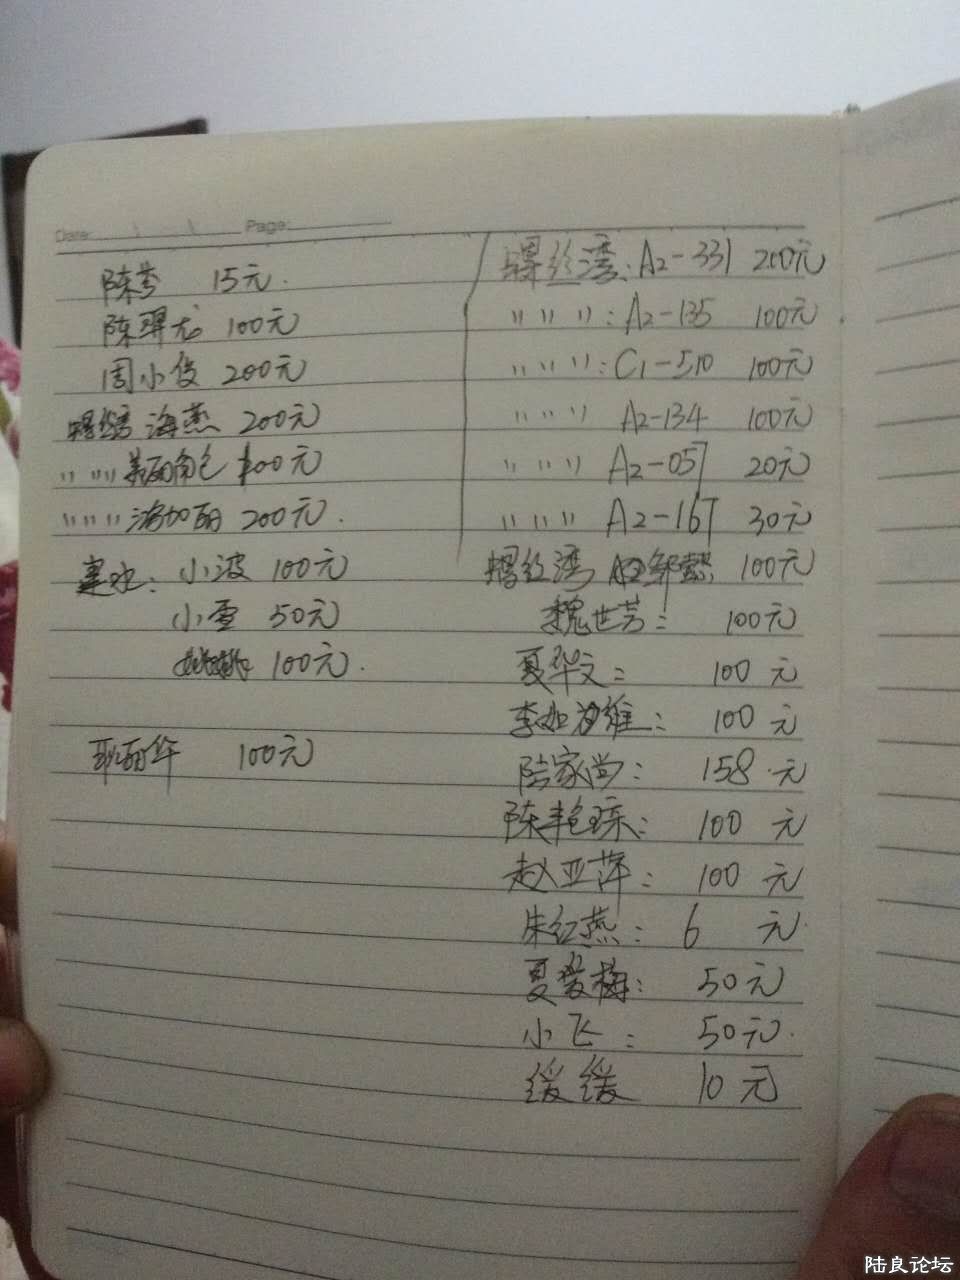 Date: Page:
陈芬 15元.
陈翠龙 100元
周小俊 200元
螺丝湾 海燕 200元
〃〃〃 美丽角色 100元
〃〃〃 海加丽 200元.
建水: 小波 100元
小雪 50元
100元.
耿丽华 100元
螺丝湾: A2-331 200元
〃〃〃: A2-135 100元
〃〃〃: C1-510 100元
〃〃〃 A2-134 100元
〃〃〃 A2-057 20元
〃〃〃 A2-167 30元
螺丝湾 100元
魏世芳: 100元
夏华文: 100元
李如 维: 100元
陆家尚: 158元
陈艳琼: 100元
赵亚萍: 100元
朱红燕: 6元
夏爱梅: 50元
小飞: 50元.
缓缓 10元
陆良论坛